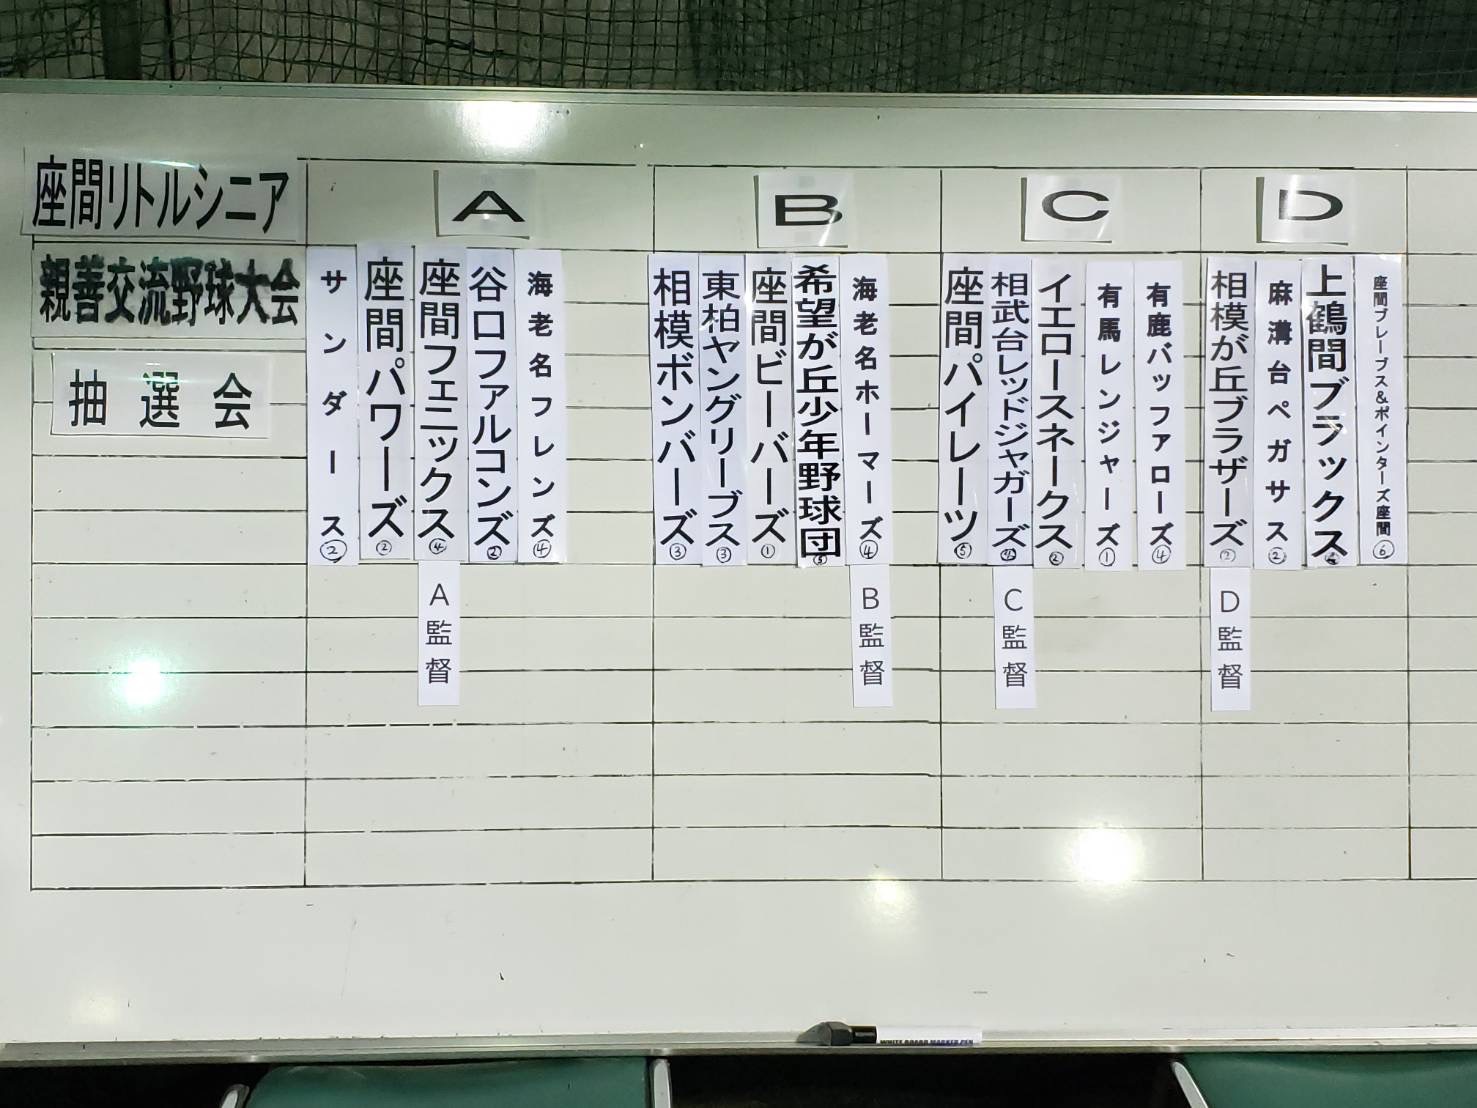 座間リトルシニア
親善交流野球大会
抽選会
A
サンダース②
座間パワーズ②
座間フェニックス④
谷口ファルコンズ②
海老名フレンズ④
A監督
B
相模ボンバーズ③
東柏ヤングリーブス③
座間ビーバーズ①
希望が丘少年野球団⑤
海老名ホーマーズ④
B監督
C
座間パイレーツ⑤
相武台レッドジャガーズ
イエロースネークス②
有馬レンジャーズ①
有鹿バッファローズ④
C監督
D
相模が丘ブラザーズ②
麻溝台ペガサス②
上鶴間ブラックス
座間ブレーブス&ポインターズ座間⑥
D監督
WHITE BOARD MARKER PEN